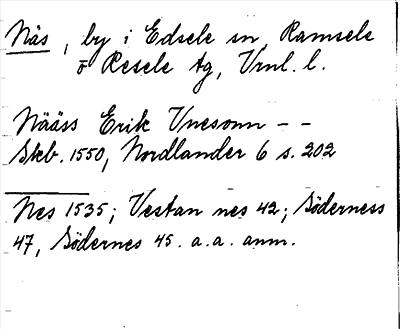 Näs, by i Edsele sn, Ramsele
o Resele tg, Vrnl. l.
Nääss Erik Vnesonn - -
Skb. 1550, Nordlander 6 s. 202
Nes 1535; Vestan nes 42; Söderness
47, Södernes 45. a.a. anm.